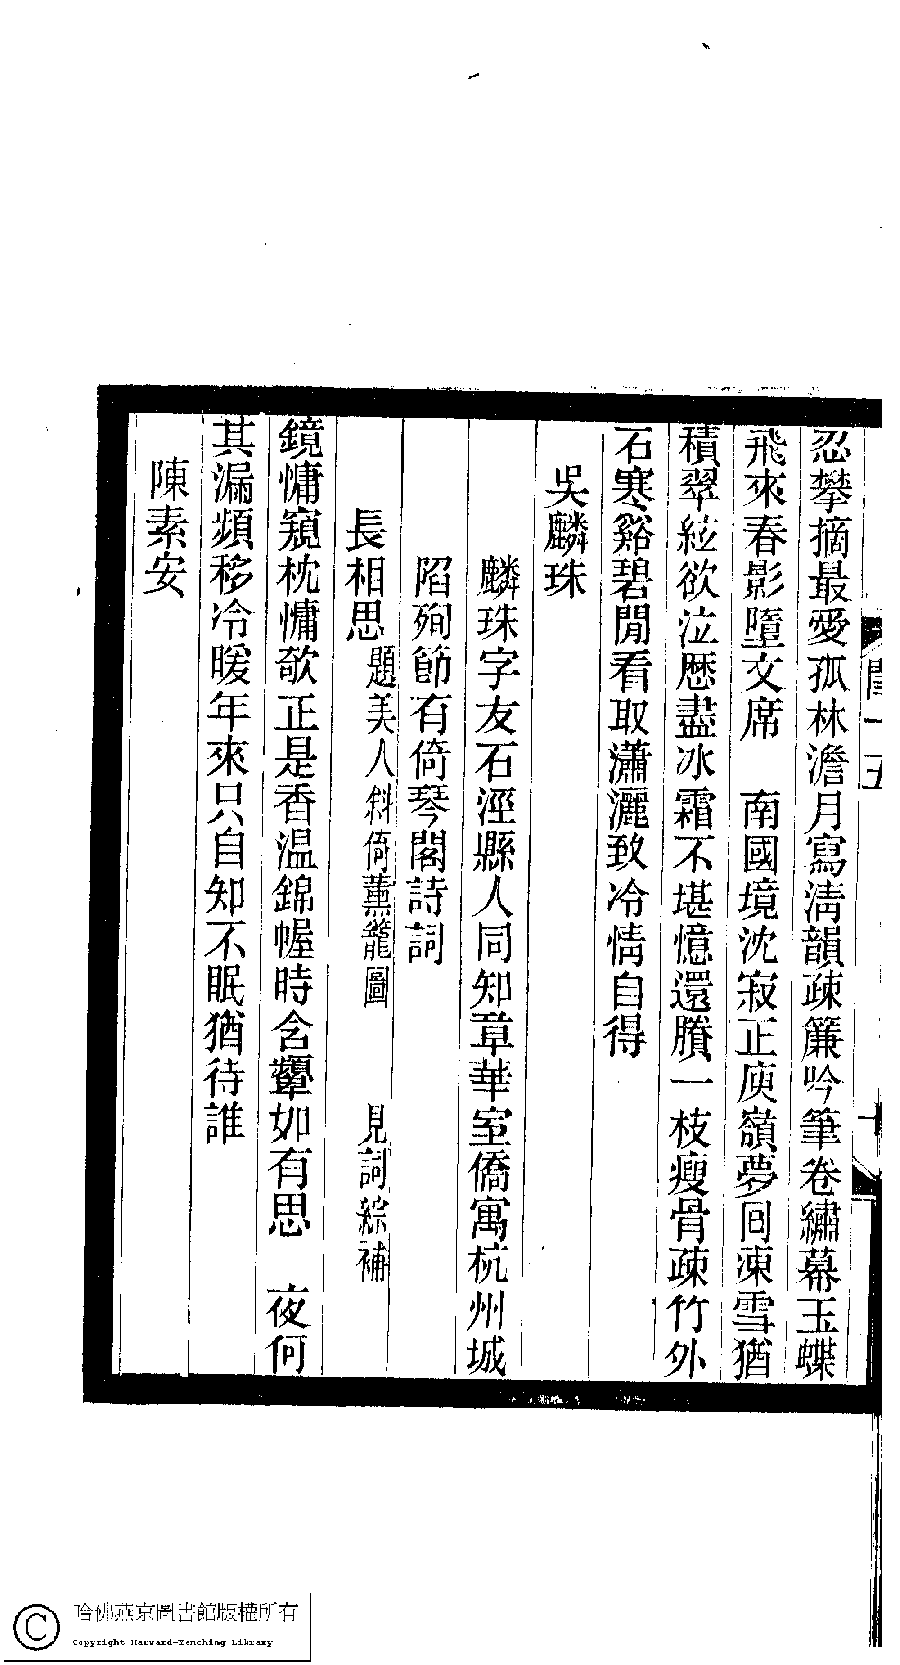 忍攀摘最愛孤林澹月寫淸韻疎簾吟筆卷繡幕玉蝶
飛來春影墮文席　南國境沈寂正庾嶺夢囘凍雪猶
積翠絃欲泣歷盡冰霜不堪憶還賸一枝瘦骨疎竹外
石寒谿碧閒看取瀟灑致冷情自得
吳麟珠
麟珠字友石涇縣人同知章華室僑寓杭州城
陷殉節有倚琴閣詩詞
長相思題美人斜倚薰籠圖　見詞綜補
鏡慵窺枕慵欹正是香温錦幄時含顰如有思　夜何
其漏頻移冷暖年來只自知不眠猶待誰
陳素安
哈佛燕京圖書館版權所有
Copyright Harvard-Yenching Library